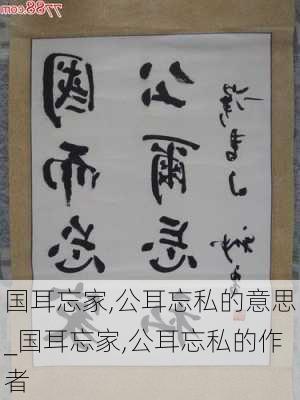 7788.com
國而忘家
公爾忘私
国耳忘家,公耳忘私的意思
_国耳忘家,公耳忘私的作
者